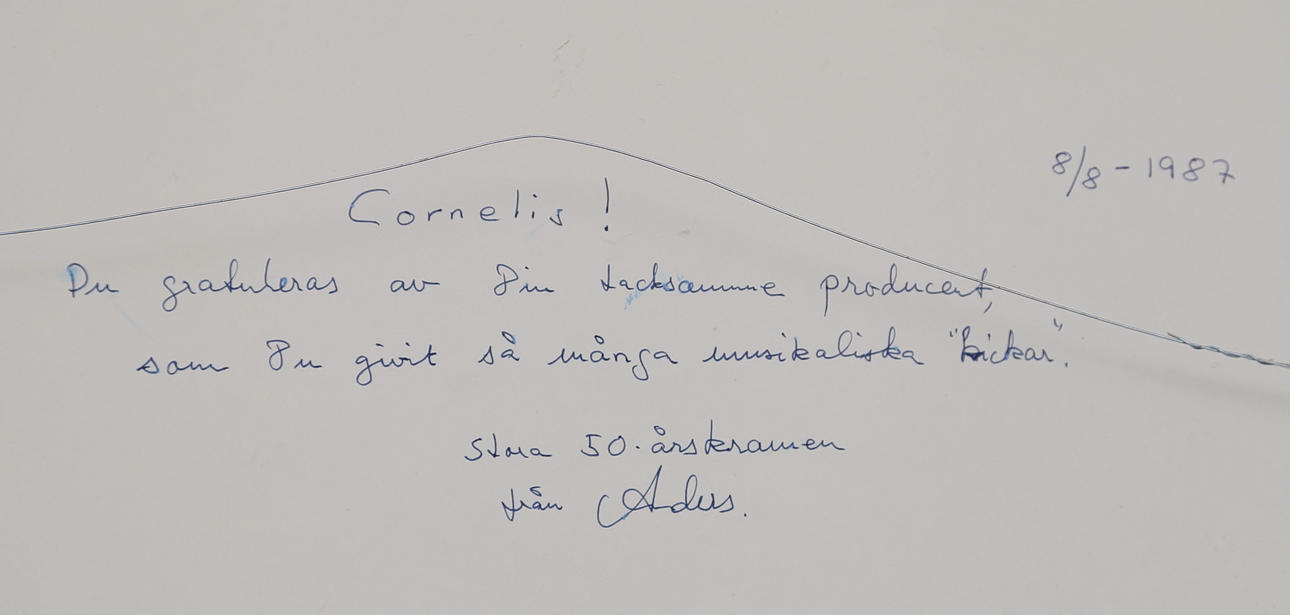 8/8 - 1987
Cornelis!
Du gratuleras av Din tacksamme producent,
som Du givit så många musikaliska "kickar".
Stora 50-årskramen
från Anders.